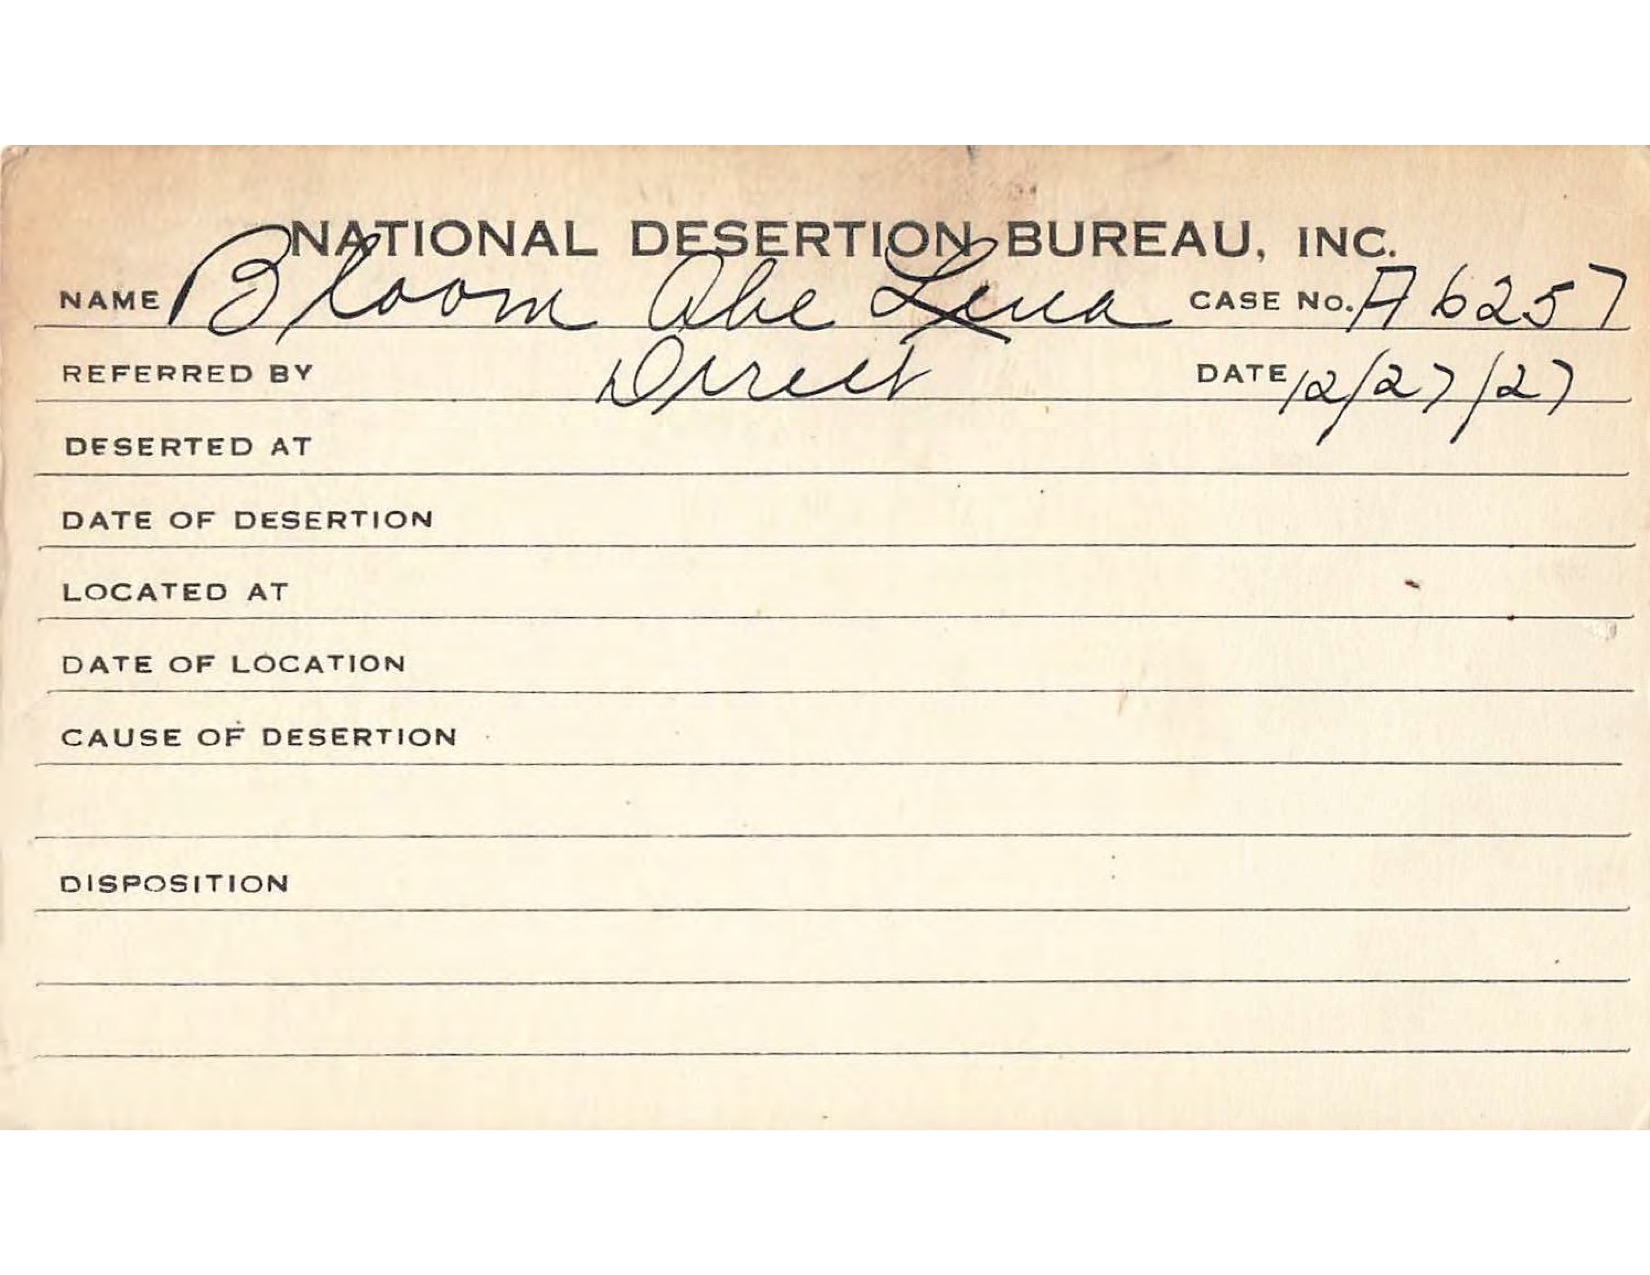 NATIONAL DESERTION BUREAU, INC.
NAME Bloom Abe Lena CASE No. A6257
REFERRED BY Direct DATE 12/27/27
DESERTED AT
DATE OF DESERTION
LOCATED AT
DATE OF LOCATION
CAUSE OF DESERTION
DISPOSITION